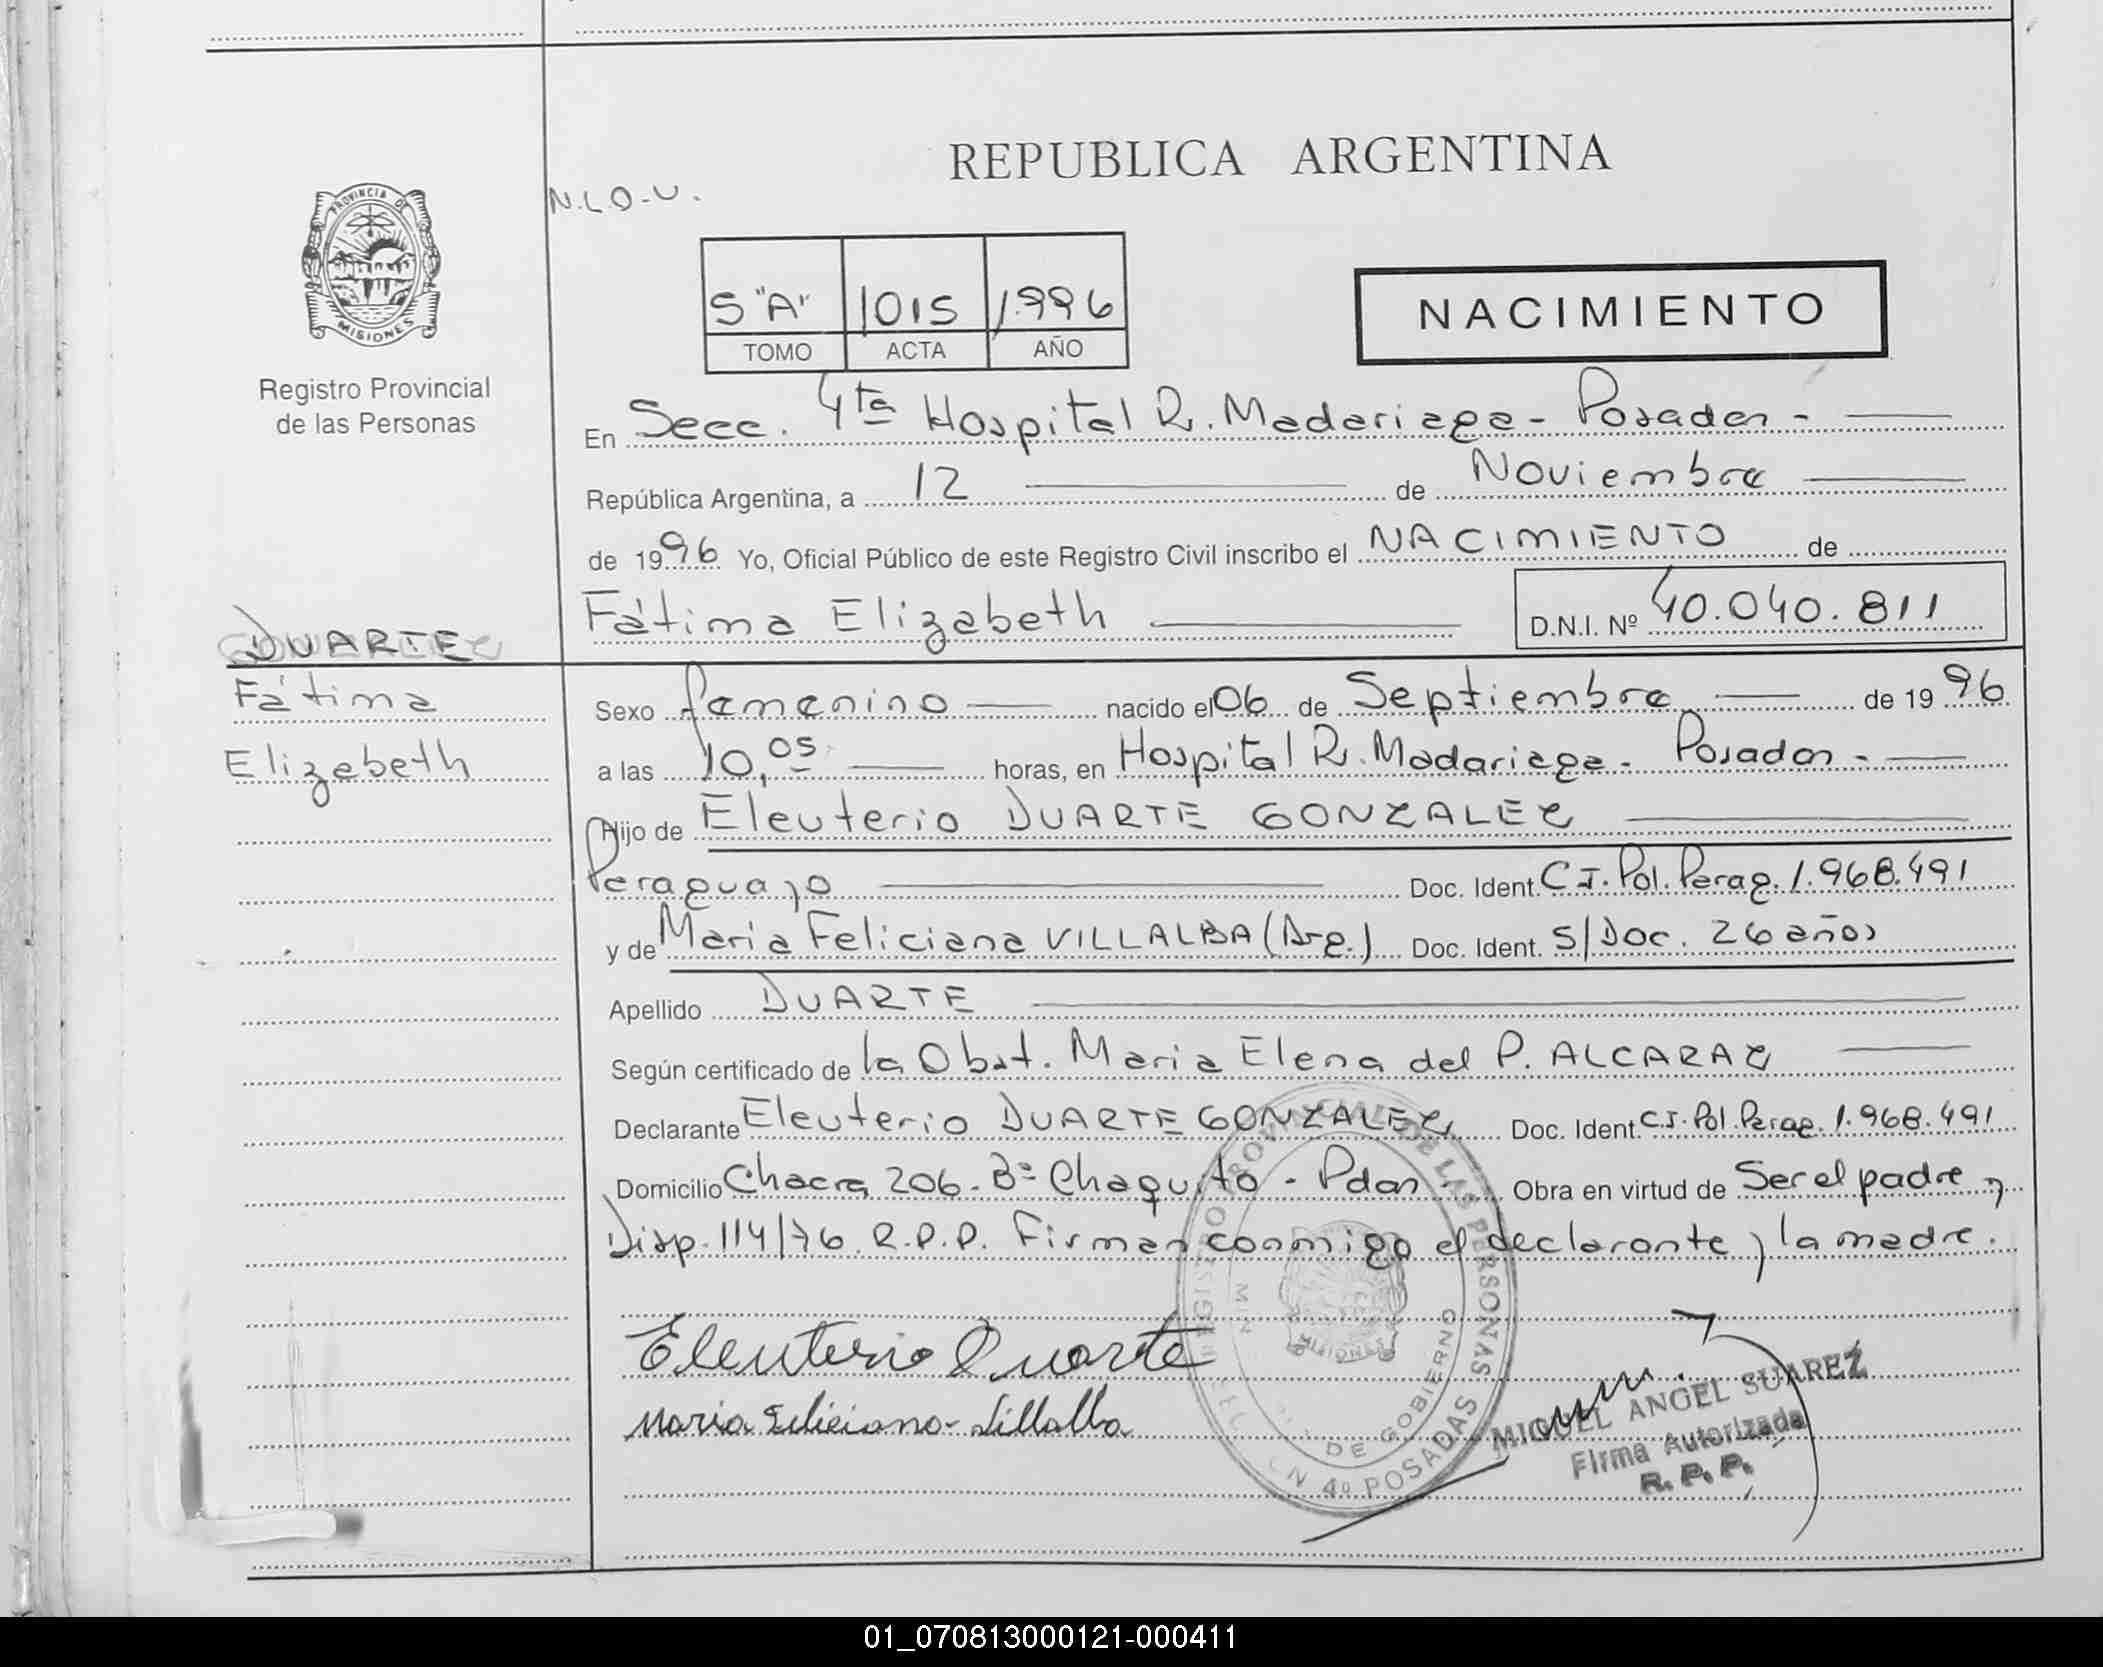 REPUBLICA ARGENTINA
N.L.O.U.
PROVINCIA DE
MISIONES
Registro Provincial
de las Personas
5 "A" 1015 1996
TOMO ACTA AÑO
NACIMIENTO
En Secc. 4ta Hospital R. Madariaga - Posadas -
República Argentina, a 12 de Noviembre
de 1996 Yo, Oficial Público de este Registro Civil inscribo el NACIMIENTO de
Fátima Elizabeth D.N.I. Nº 40.040.811
DUARTE
Fátima
Elizabeth
Sexo femenino nacido el 06 de Septiembre de 1996
a las 10,05 horas, en Hospital R. Madariaga - Posadas -
Hijo de Eleuterio DUARTE GONZALEZ
Paraguayo Doc. Ident. C.I. Pol. Parag. 1.968.491
y de Maria Feliciana VILLALBA (Arg.) Doc. Ident. S/Doc. 26 años
Apellido DUARTE
Según certificado de la Obst. Maria Elena del P. ALCARAZ
Declarante Eleuterio DUARTE GONZALEZ Doc. Ident. C.I. Pol. Parag. 1.968.491
Domicilio Chacra 206 - Bº Chaquito - Pdas - Obra en virtud de Ser el padre y
Disp. 114/76 R.P.P. Firman conmigo el declarante y la madre.
Eleuterio Duarte
Maria Feliciana Villalba
REGISTRO PROVINCIAL DE LAS PERSONAS
DE GOBIERNO
MISIONES
4º POSADAS
MIGUEL ANGEL SUAREZ
Firma Autorizada
R. P. P.
01_070813000121-000411